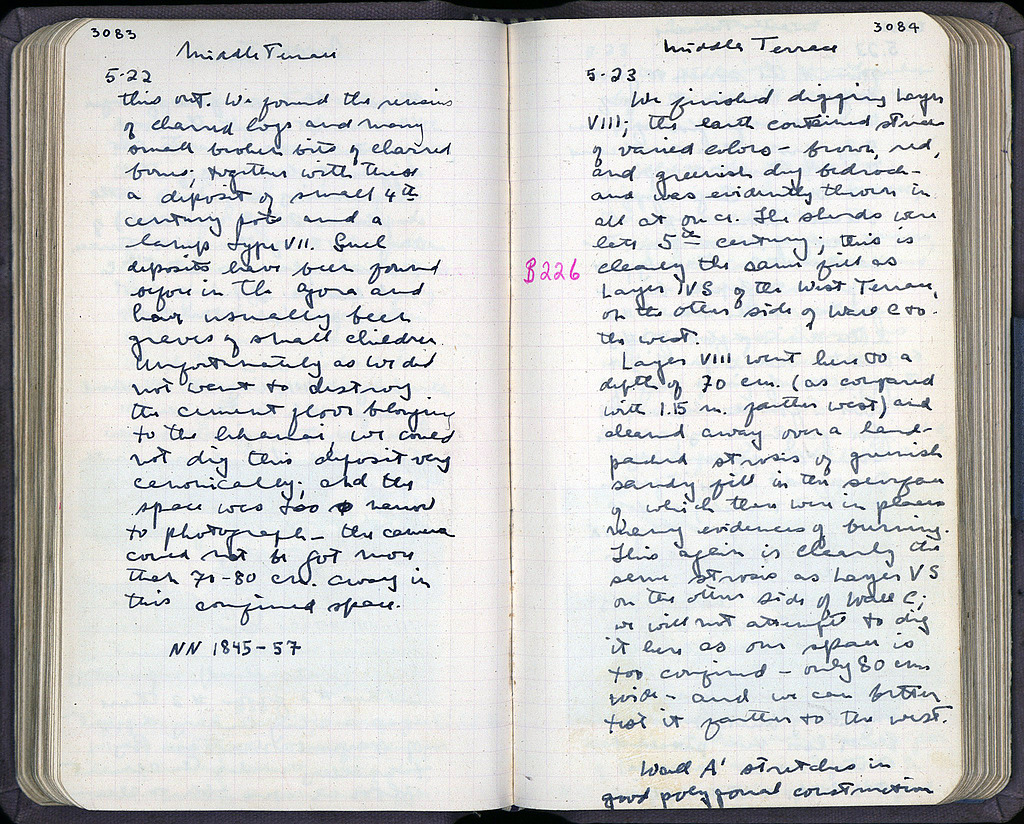 3083
Middle Terrace
5·22
this out. We found the remains
of charred logs and many
small broken bits of charred
bone; together with these
a deposit of small 4th
century pots and a
lamp Type VII. Such
deposits have been found
before in the Agora and
have usually been
graves of small children.
Unfortunately as we did
not want to destroy
the cement floor belonging
to the we could
not dig this deposit very
canonically; and the
space was too narrow
to photograph – the camera
could not be got more
than 70-80 cm. away in
this confined space.
NN 1845-57
3084
Middle Terrace
5·23
We finished digging Layer
VIII; the earth contained streaks
of varied colors – brown, red,
and greenish dug bedrock –
and was evidently thrown in
all at once. The sherds were
late 5th century; this is
B226
clearly the same fill as
Layer IVS of the West Terrace,
on the other side of Wall C to
the west.
Layer VIII went here to a
depth of 70 cm. (as compared
with 1.15 m. farther west) and
cleaned away over a hard-
packed strosis of greenish
sandy fill in the surface
of which there were in places
many evidences of burning.
This again is clearly the
same strosis as Layer VS
on the other side of Wall C;
we will not attempt to dig
it here as our space is
too confined – only 80 cms
wide – and we can better
test it farther to the west.
Wall A' stretches in
good polygonal construction